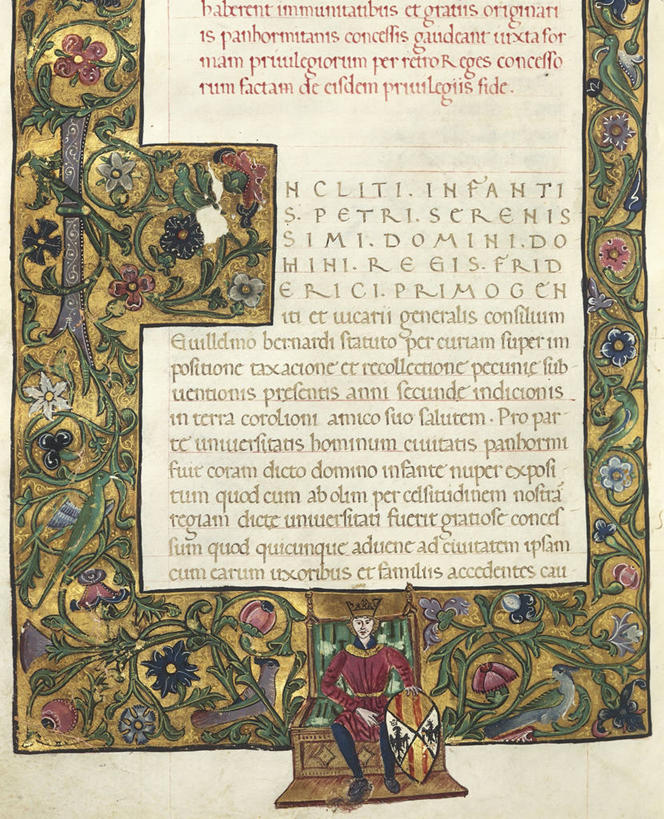 haberent immunitatibus et gratiis originari
is panhormitanis concessis gaudeant iuxta for
mam priuilegiorum per retro Reges concesso
rum factam de eisdem priuilegiis fide.
INCLITI. INFANTI
S. PETRI. SERENIS
SIMI. DOMINI. DO
MINI. REGIS. FRID
ERICI. PRIMOGEN
iti et uicarii generalis consilium
Guillelmo bernardi statuto per curiam super im
positione taxacione et recollectione pecunie sub
uentionis presentis anni secunde indicionis
in terra corolioni amico suo salutem. Pro par
te uniuersitatis hominum ciuitatis panhormi
fuit coram dicto domino infante nuper exposi
tum quod cum ab olim per celsitudinem nostrã
regiam dicte uniuersitati fuerit gratiose conces
sum quod quicunque aduene ad ciuitatem ipsam
cum earum uxoribus et familiis accedentes cau